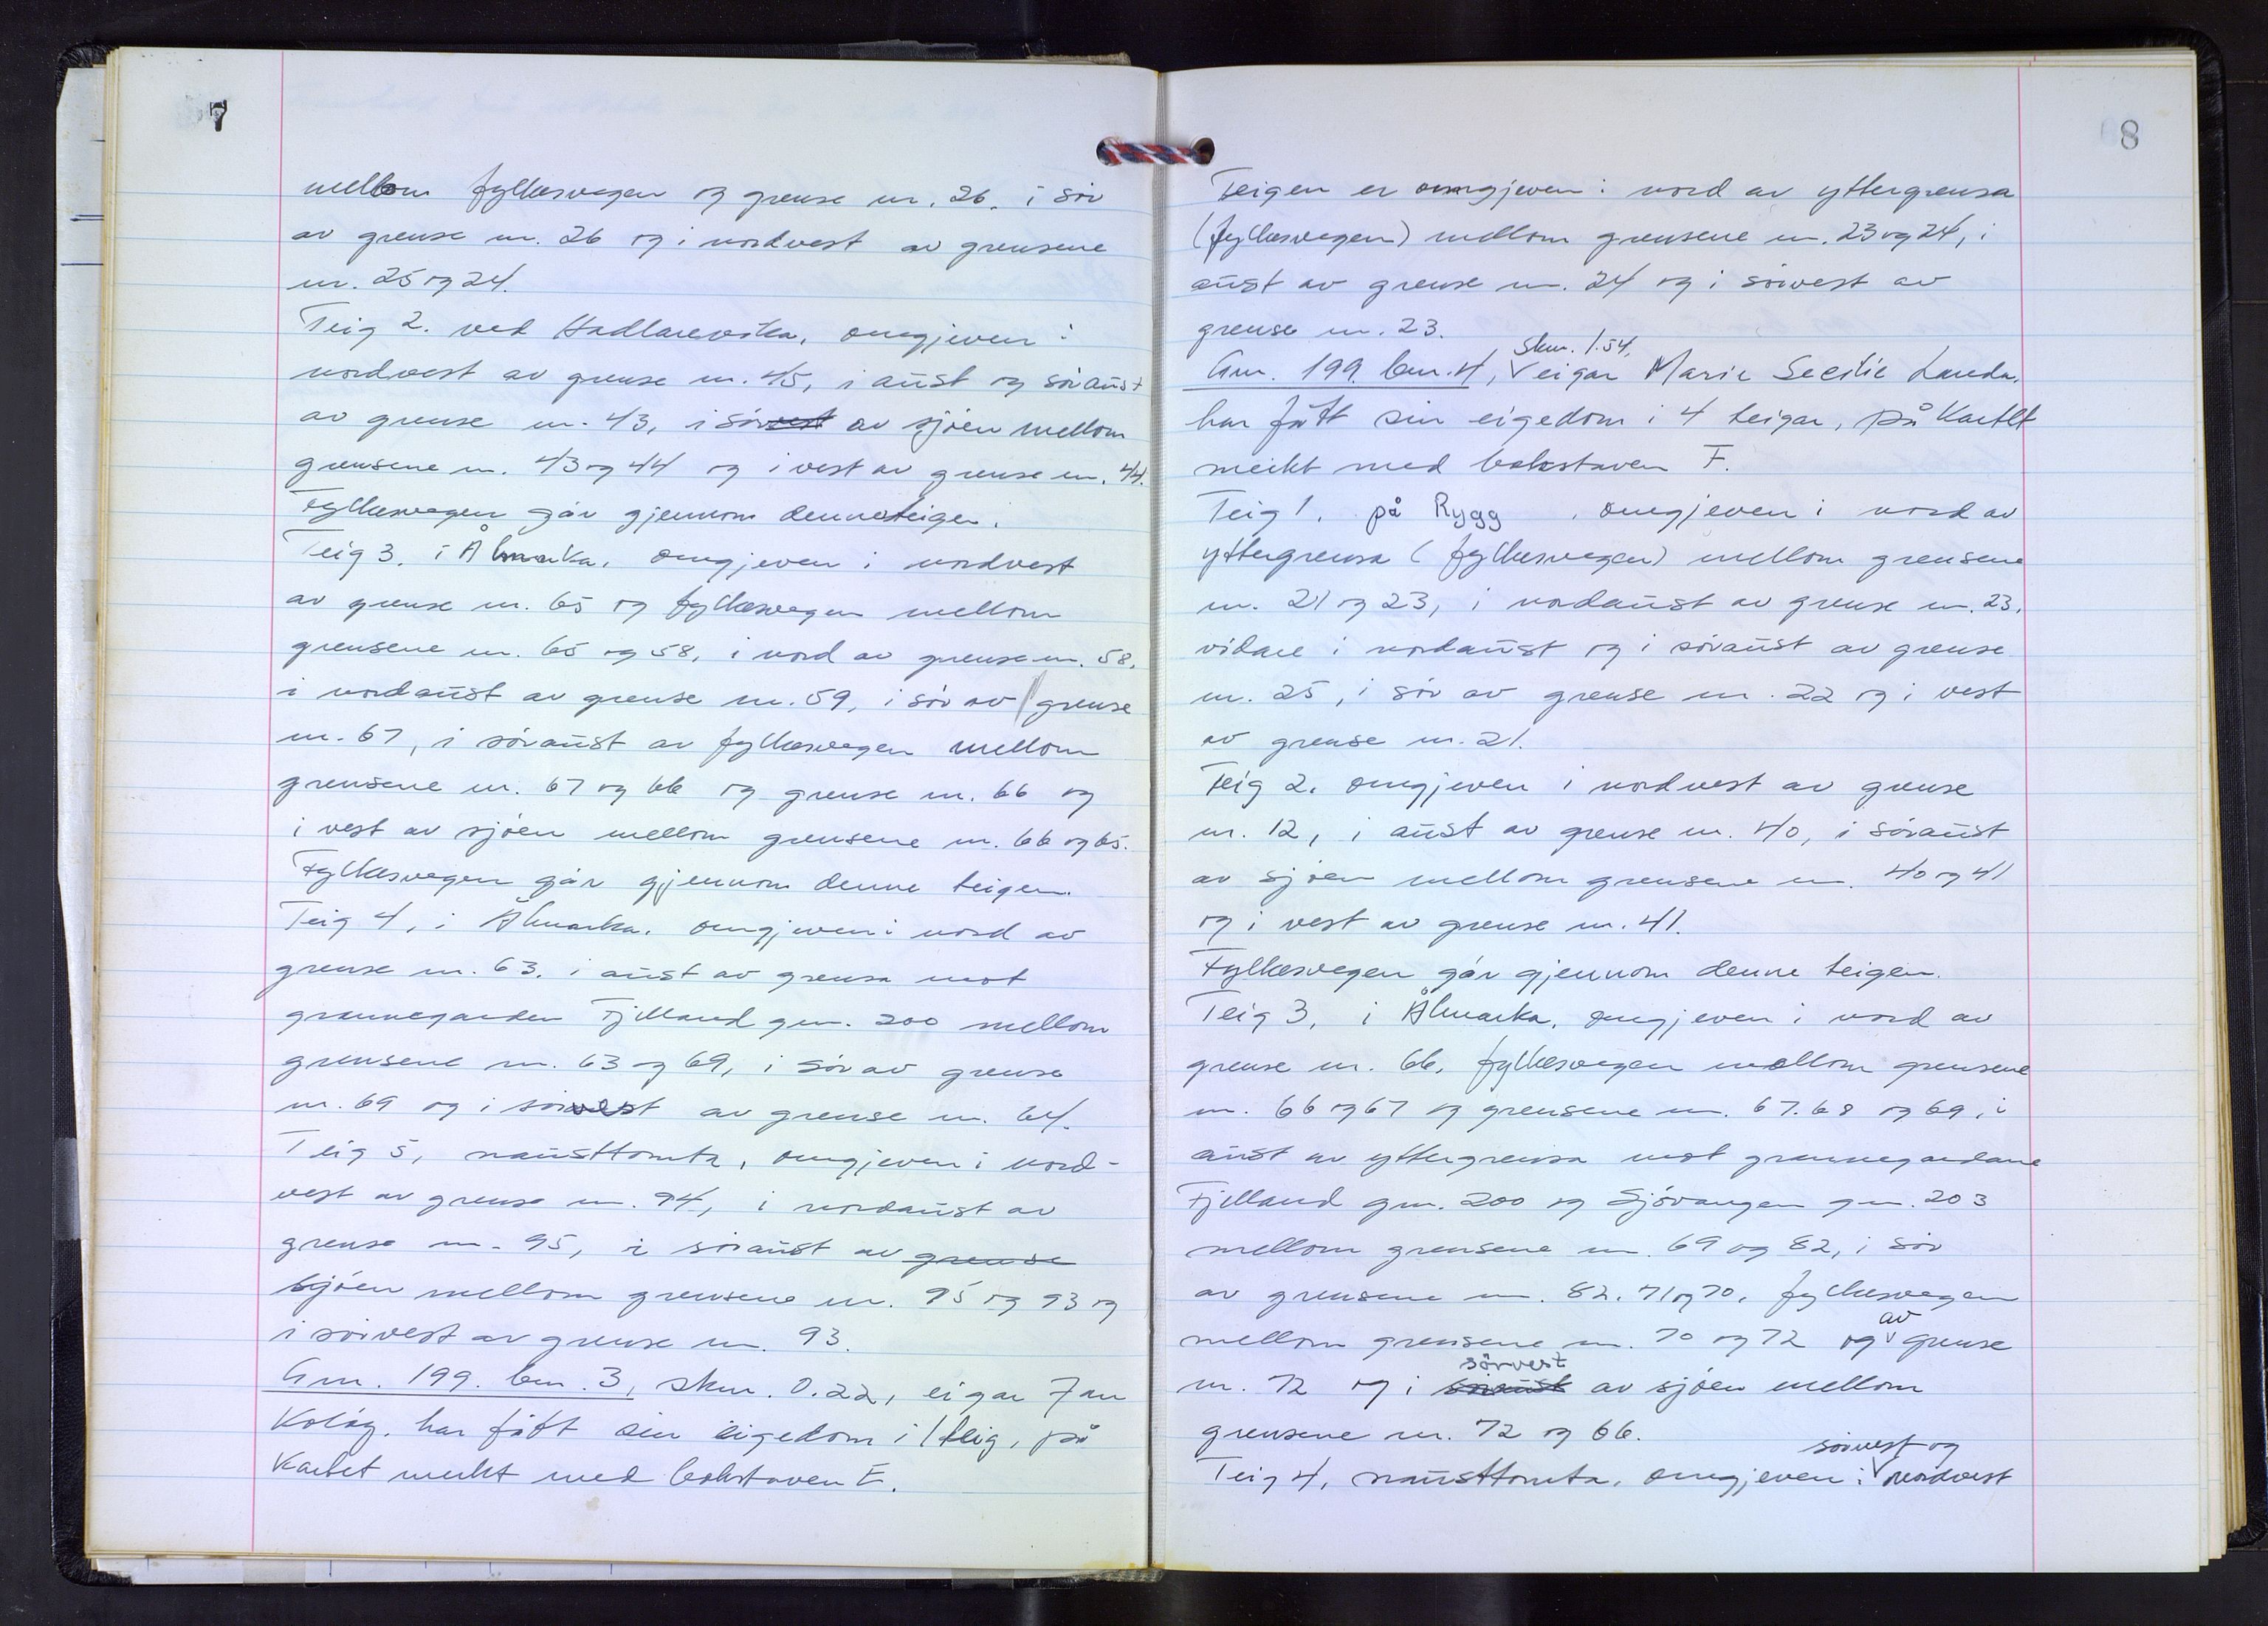 7
mellom fylkesvegen og grense nr. 26. i sör
av grense nr. 26 og i nordvest av grensene
nr. 25 og 24.
Teig 2. ved Hadlarevika, omgjeven i
nordvest av grense nr. 45, i aust og söraust
av grense nr. 43, i sörvest av sjöen mellom
grensene nr. 43 og 44 og i vest av grense nr. 44.
Fylkesvegen går gjennom denne teigen.
Teig 3. i Ålmarka, omgjeven i nordvest
av grense nr. 65 og fylkesvegen mellom
grensene nr. 65 og 58, i nord av grense nr. 58,
i nordaust av grense nr. 59, i sör av grense
nr. 67, i söraust av fylkesvegen mellom
grensene nr. 67 og 66 og grense nr. 66 og
i vest av sjöen mellom grensene nr. 66 og 65.
Fylkesvegen går gjennom denne teigen.
Teig 4, i Ålmarka. omgjeven i nord av
grense nr. 63. i aust av grensa mot
grannegarden Fjelland gnr. 200 mellom
grensene nr. 63 og 69, i sör av grense
nr. 69 og i sörvest av grense nr. 64.
Teig 5, nausttomta, omgjeven i nord-
vest av grense nr. 94, i nordaust av
grense nr. 95, i söraust av grense
sjöen mellom grensene nr. 95 og 93 og
i sörvest av grense nr. 93.
Gnr. 199. bnr. 3, skm. 0.22, eigar Jan
har fått sin eigedom i 1 teig, på
kartet merkt med bokstaven E.
8
Teigen er omgjeven i nord av yttergrensa
(fylkesvegen) mellom grensene nr. 23 og 24, i
aust av grense nr. 24 og i sörvest av
grense nr. 23.
skm. 1.54,
Gnr. 199. bnr. 4, eigar Marie Secilie Landa,
har fått sin eigedom i 4 teigar, på kartet
merkt med bokstaven F.
Teig 1. på Rygg, omgjeven i nord av
yttergrensa (fylkesvegen) mellom grensene
nr. 21 og 23, i nordaust av grense nr. 23.
vidare i nordaust og i söraust av grense
nr. 25, i sör av grense nr. 22 og i vest
av grense nr. 21.
Teig 2. omgjeven i nordvest av grense
nr. 12, i aust av grense nr. 40, i söraust
av sjöen mellom grensene nr. 40 og 41
og i vest av grense nr. 41.
Fylkesvegen går gjennom denne teigen.
Teig 3, i Ålmarka, omgjeven i nord av
grense nr. 66, fylkesvegen mellom grensene
nr. 66 og 67 og grensene nr. 67. 68 og 69, i
aust av yttergrensa mot grannegardane
Fjelland gnr. 200 og Sjövangen gnr. 203
mellom grensene nr. 69 og 82, i sör
av grensene nr. 82. 71 og 70, fylkesvegen
av
mellom grensene nr. 70 og 72 og grense
sörvest
nr. 72 og i söraust av sjöen mellom
grensene nr. 72 og 66.
sörvest og
Teig 4, nausttomta, omgjeven i nordvest